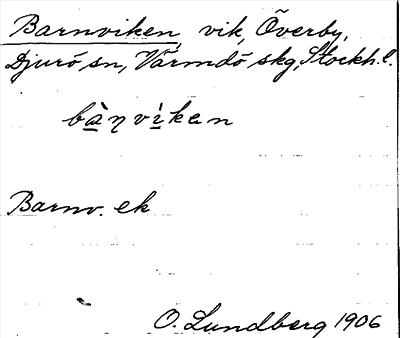 Barnviken vik, Överby,
Djurö sn, Värmdö skg, Stockh. l.
bàŋvìken
Barnv. ek
O. Lundberg 1906